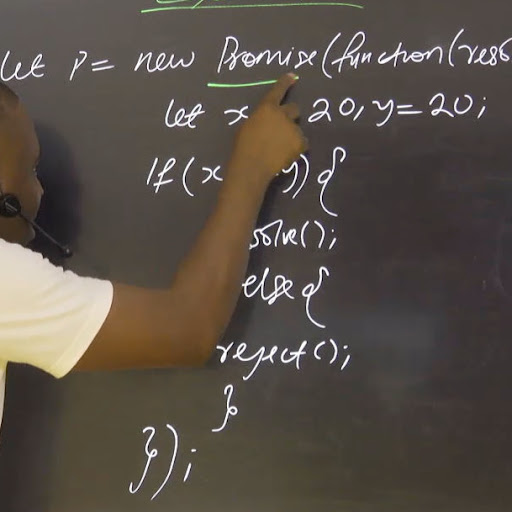 let P = new Promise(function(reso
let x 20, y = 20;
If (x y) {
solve();
else {
reject();
}
});